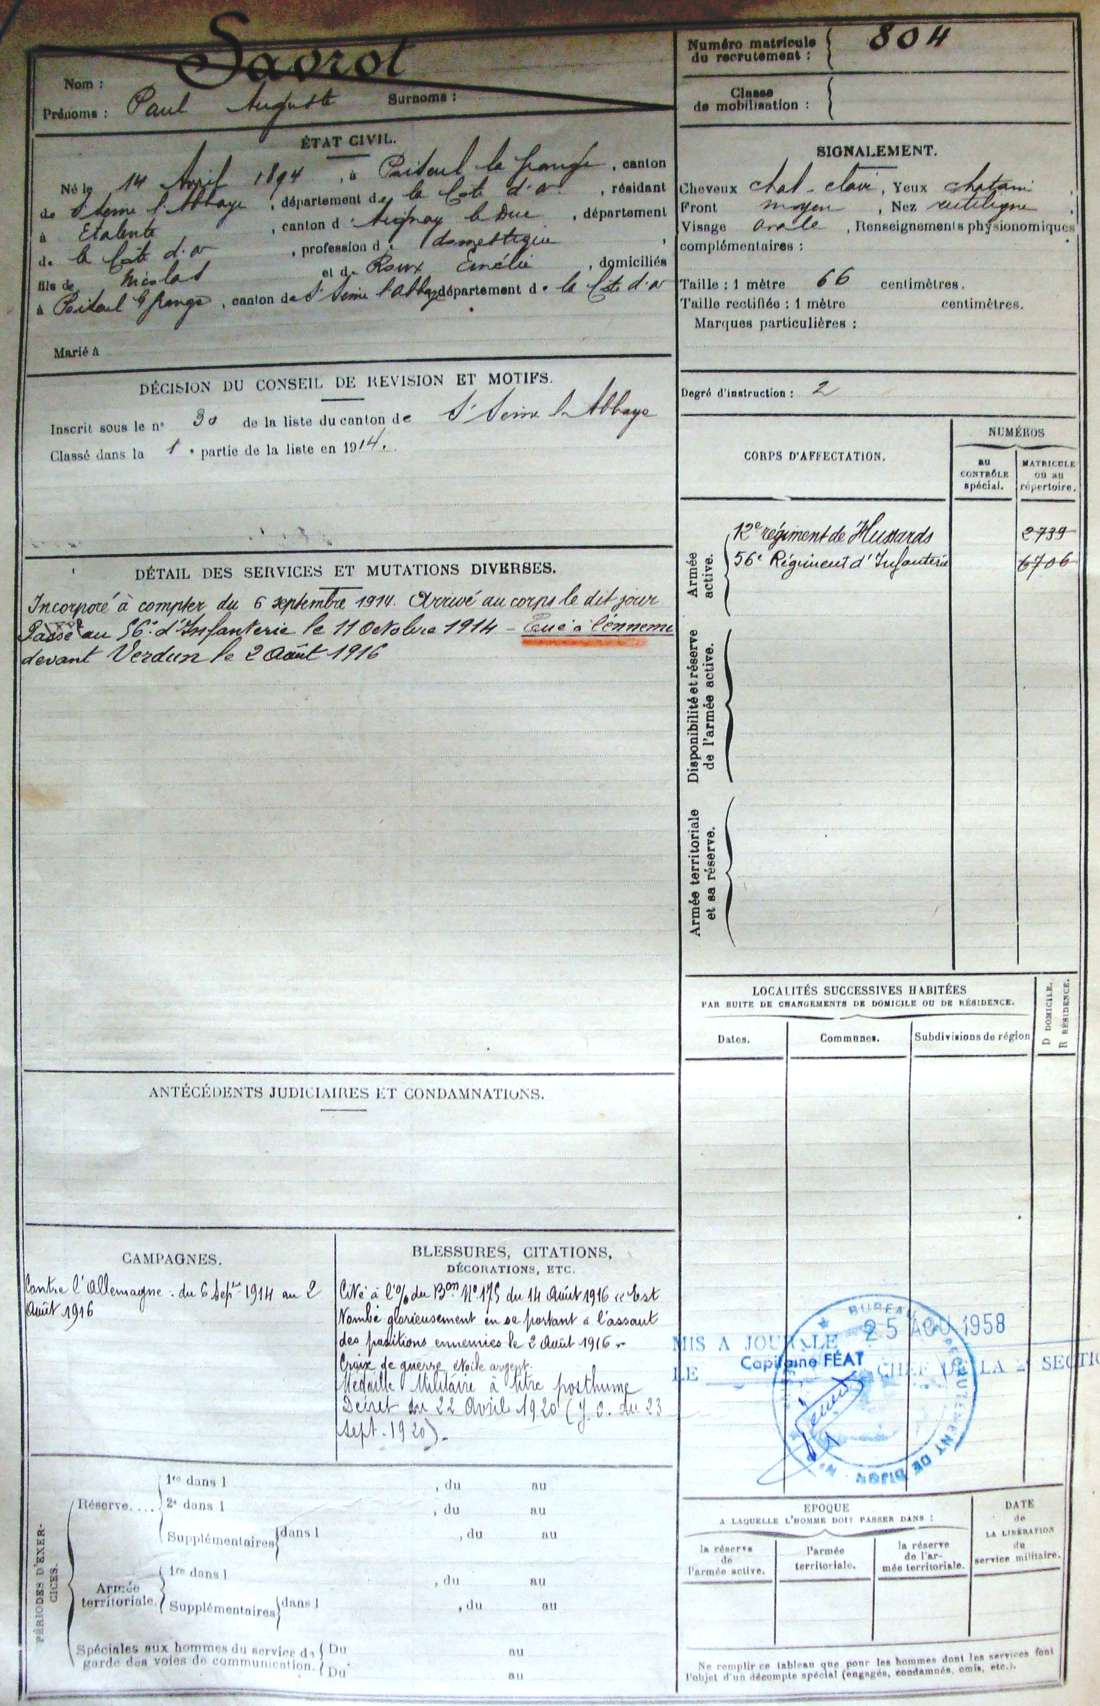 Nom : Savrot
Prénoms : Paul Auguste Surnoms :
Numéro matricule du recrutement : 804
Classe de mobilisation :
ÉTAT CIVIL.
Né le 14 Avril 1894, à Poiseul la Grange, canton
de St Seine l'Abbaye, département de la Côte d'or, résidant
à Etalente, canton d'Aignay le Duc, département
de la Côte d'or, profession de domestique,
fils de Nicolas et de Roux Emélie, domiciliés
à Poiseul la Grange, canton de St Seine l'Abbaye département de la Côte d'or
Marié à
SIGNALEMENT.
Cheveux chat-clair, Yeux chatain,
Front moyen, Nez rectiligne,
Visage ovale, Renseignements physionomiques
complémentaires :
Taille : 1 mètre 66 centimètres.
Taille rectifiée : 1 mètre centimètres.
Marques particulières :
Degré d'instruction : 2
DÉCISION DU CONSEIL DE REVISION ET MOTIFS.
Inscrit sous le n° 30 de la liste du canton de St Seine l'Abbaye
Classé dans la 1e partie de la liste en 1914.
CORPS D'AFFECTATION.
NUMÉROS
au CONTRÔLE spécial.
MATRICULE ou au répertoire.
Armée active.
12e régiment de Hussards 2739
56e Régiment d'Infanterie 6706
Disponibilité et réserve de l'armée active.
Armée territoriale et sa réserve.
DÉTAIL DES SERVICES ET MUTATIONS DIVERSES.
Incorporé à compter du 6 septembre 1914. Arrivé au corps le dit jour
Passé au 56e d'Infanterie le 11 Octobre 1914 - Tué à l'ennemi
devant Verdun le 2 Août 1916
LOCALITÉS SUCCESSIVES HABITÉES
PAR SUITE DE CHANGEMENTS DE DOMICILE OU DE RÉSIDENCE.
Dates. Communes. Subdivisions de région
D DOMICILE.
R RÉSIDENCE.
ANTÉCÉDENTS JUDICIAIRES ET CONDAMNATIONS.
CAMPAGNES.
Contre l'Allemagne. du 6 Sepbre 1914 au 2
Août 1916
BLESSURES, CITATIONS,
DÉCORATIONS, ETC.
Cité à l'O/ du Bon N° 175 du 14 Août 1916 « Est
tombé glorieusement en se portant à l'assaut
des positions ennemies le 2 Août 1916 »
Croix de guerre étoile argent.
Médaille Militaire à titre posthume
Décret du 22 Avril 1920 (J.O. du 23
Sept. 1920).
MIS A JOUR LE 25 AOU 1958
Capitaine FÉAT
LE CHEF DE LA 2e SECTIO
BUREAU DE RECRUTEMENT DE DIJON
PÉRIODES D'EXERCICES.
Réserve....
1re dans l , du au
2e dans l , du au
Supplémentaires dans l , du au
Armée territoriale.
1re dans l , du au
Supplémentaires dans l , du au
Spéciales aux hommes du service de garde des voies de communication.
Du au
Du au
EPOQUE
A LAQUELLE L'HOMME DOIT PASSER DANS :
la réserve de l'armée active.
l'armée territoriale.
la réserve de l'armée territoriale.
DATE de LA LIBÉRATION du service militaire.
Ne remplir ce tableau que pour les hommes dont les services font
l'objet d'un décompte spécial (engagés, condamnés, omis, etc.).